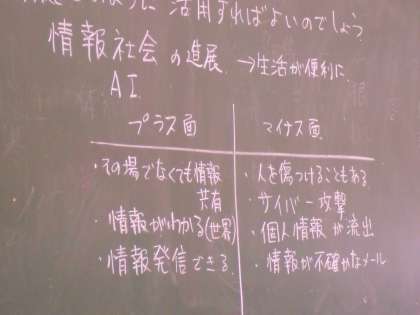 のように活用すればよいのでしょう?
情報社会の進展 →生活が便利に
AI
プラス面 マイナス面
・その場でなくても情報共有
・情報がわかる(世界)
・情報発信できる
・人を傷つけることもある
・サイバー攻撃
・個人情報が流出
・情報が不確かなメール